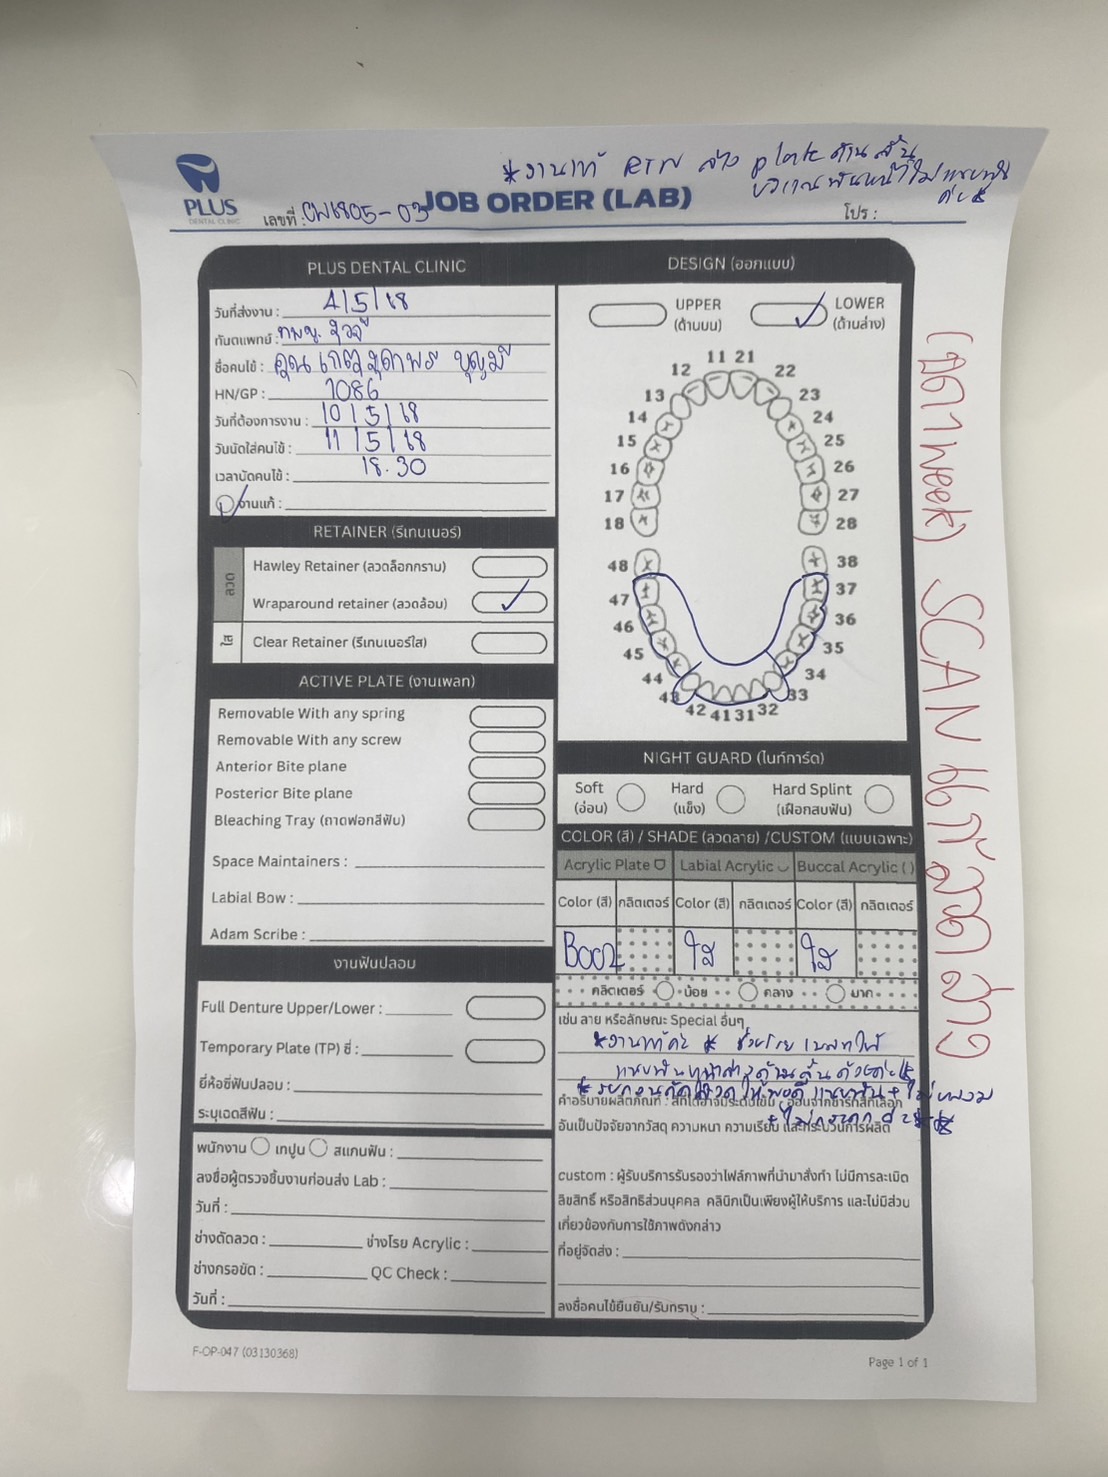 *งานแก้ RTN ล่าง plate ด้านลิ้น
บริเวณฟันหน้าไม่แนบฟัน
ค่ะ*
PLUS
DENTAL CLINIC
เลขที่ : CW6805-03
JOB ORDER (LAB)
โปร :
PLUS DENTAL CLINIC
วันที่ส่งงาน : 4/5/68
ทันตแพทย์ : ทพญ.
ชื่อคนไข้ : คุณ บุญมี
HN/GP : 1086
วันที่ต้องการงาน : 10/5/68
วันนัดใส่คนไข้ : 11/5/68
เวลานัดคนไข้ : 18.30
งานแก้ :
RETAINER (รีเทนเนอร์)
ลวด
Hawley Retainer (ลวดล็อกกราม)
Wraparound retainer (ลวดล้อม)
ใส
Clear Retainer (รีเทนเนอร์ใส)
ACTIVE PLATE (งานเพลท)
Removable With any spring
Removable With any screw
Anterior Bite plane
Posterior Bite plane
Bleaching Tray (ถาดฟอกสีฟัน)
Space Maintainers :
Labial Bow :
Adam Scribe :
งานฟันปลอม
Full Denture Upper/Lower :
Temporary Plate (TP) ซี่ :
ยี่ห้อซี่ฟันปลอม :
ระบุเฉดสีฟัน :
พนักงาน เทปูน สแกนฟัน :
ลงชื่อผู้ตรวจชิ้นงานก่อนส่ง Lab :
วันที่ :
ช่างดัดลวด : ช่างโรย Acrylic :
ช่างกรอขัด : QC Check :
วันที่ :
DESIGN (ออกแบบ)
UPPER
(ด้านบน)
LOWER
(ด้านล่าง)
11 21
12 22
13 23
14 24
15 25
16 26
17 27
18 28
48 38
47 37
46 36
45 35
44 34
43 33
42 41 31 32
NIGHT GUARD (ไนท์การ์ด)
Soft
(อ่อน)
Hard
(แข็ง)
Hard Splint
(เฝือกสบฟัน)
COLOR (สี) / SHADE (ลวดลาย) /CUSTOM (แบบเฉพาะ)
Acrylic Plate Labial Acrylic Buccal Acrylic ( )
Color (สี) กลิตเตอร์ Color (สี) กลิตเตอร์ Color (สี) กลิตเตอร์
B002 ใส ใส
กลิตเตอร์ น้อย กลาง มาก
เช่น ลาย หรือลักษณะ Special อื่นๆ
*งานแก้ค่ะ* ช่วยโรย เพลทให้
แนบฟันหน้าล่างด้านลิ้นด้วยค่ะ*
*รบกวนดัดลวดให้พอดี แนบฟัน + ไม่หลวม
+ ไม่กระดก ค่ะ*
คำอธิบายผลิตภัณฑ์ : สีที่ได้อาจมีระดับเข้ม - อ่อนจากชาร์ทสีที่เลือก
อันเป็นปัจจัยจากวัสดุ ความหนา ความเรียบ และกระบวนการผลิต
custom : ผู้รับบริการรับรองว่าไฟล์ภาพที่นำมาสั่งทำ ไม่มีการละเมิด
ลิขสิทธิ์ หรือสิทธิส่วนบุคคล คลินิกเป็นเพียงผู้ให้บริการ และไม่มีส่วน
เกี่ยวข้องกับการใช้ภาพดังกล่าว
ที่อยู่จัดส่ง :
ลงชื่อคนไข้ยืนยัน/รับทราบ :
(จุด 1 week) SCAN แก้ลวดล่าง
F-OP-047 (03130368)
Page 1 of 1